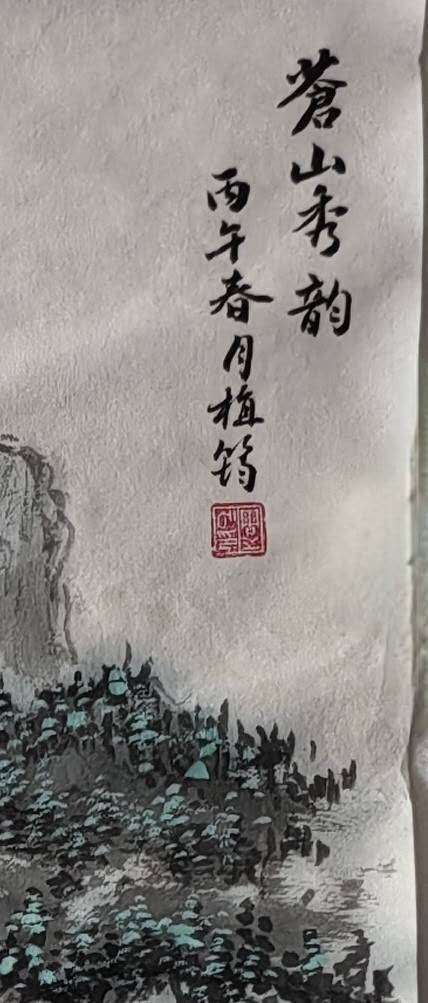 蒼山秀韵
丙午春月植筠